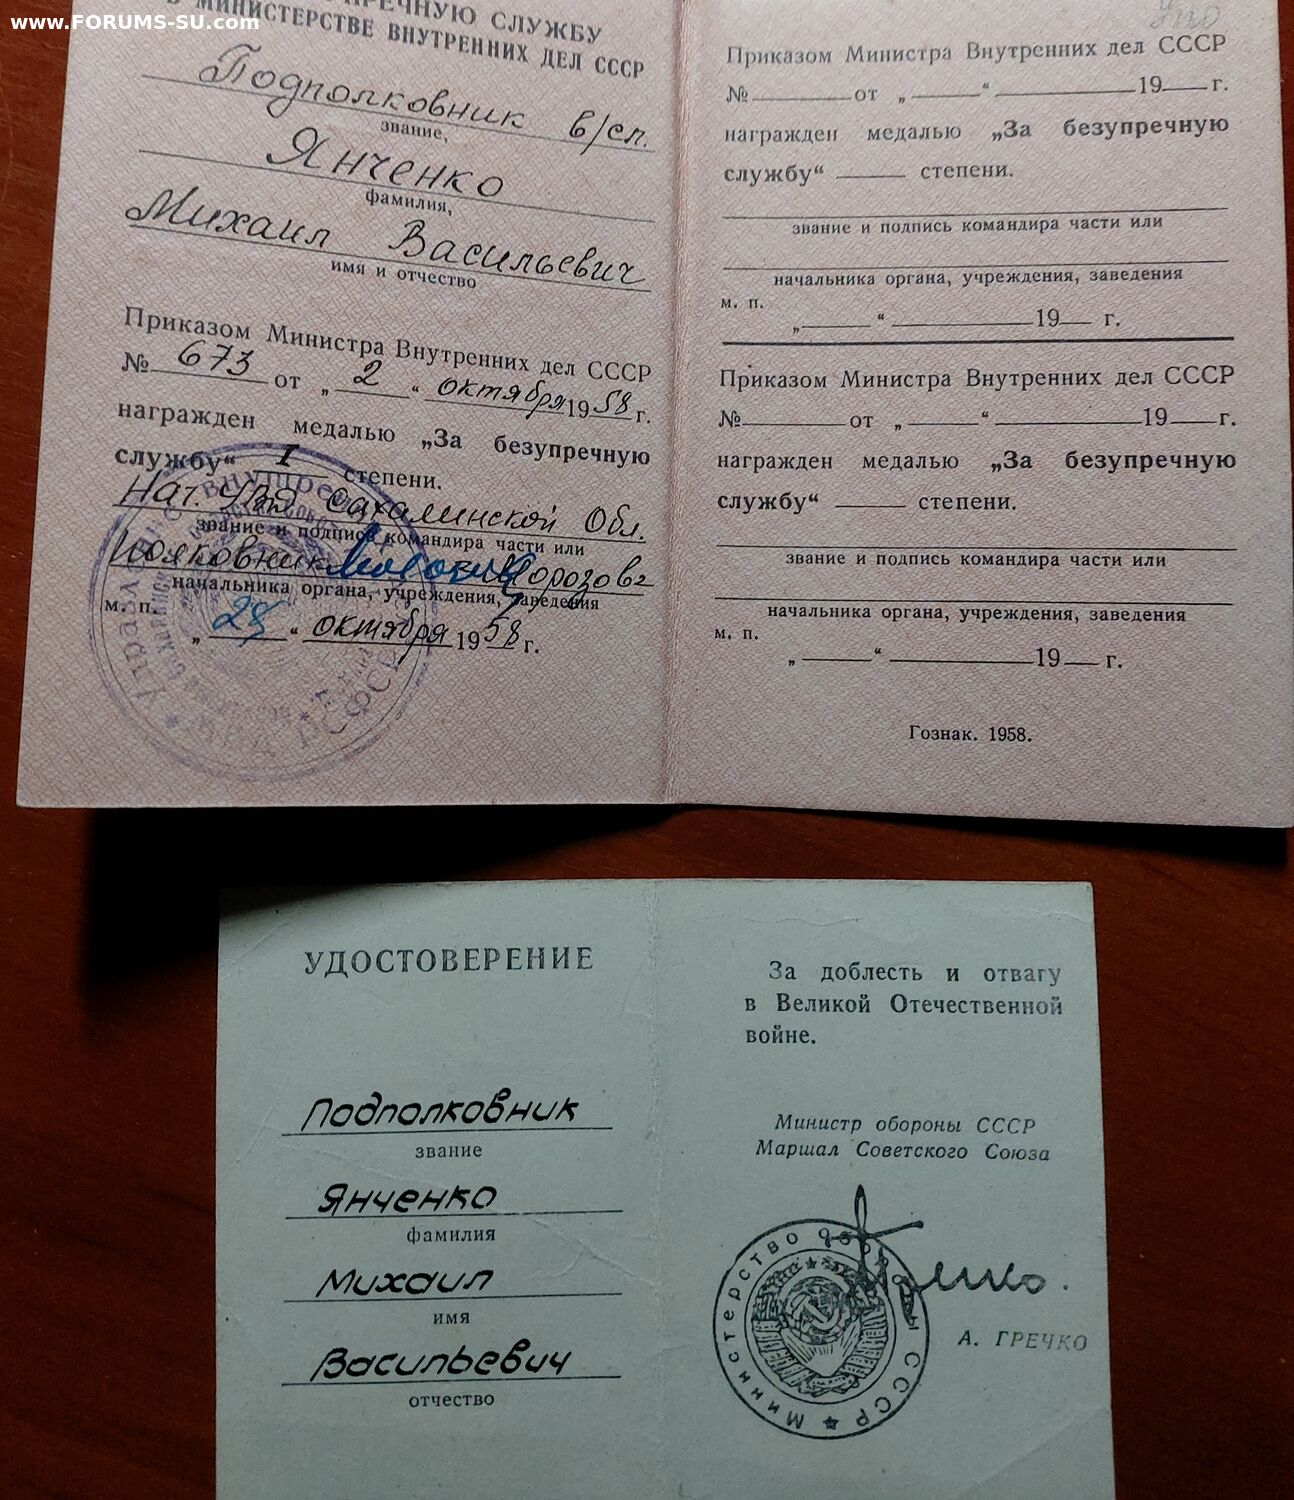 www.FORUMS-SU.com
СЛУЖБУ
МИНИСТЕРСТВЕ ВНУТРЕННИХ ДЕЛ СССР
Подполковник в/сл.
звание,
Янченко
фамилия,
Михаил Васильевич
имя и отчество
Приказом Министра Внутренних дел СССР
№ 673 от „ 2 “ октября 1958 г.
награжден медалью „За безупречную
службу“ I степени.
Нач. УВД Сахалинской Обл.
звание и подпись командира части или
Полковник Морозов
начальника органа, учреждения, заведения
м. п.
„ 25 “ октября 1958 г.
Приказом Министра Внутренних дел СССР
№ от „ “ 19 г.
награжден медалью „За безупречную
службу“ степени.
звание и подпись командира части или
начальника органа, учреждения, заведения
м. п.
„ “ 19 г.
Приказом Министра Внутренних дел СССР
№ от „ “ 19 г.
награжден медалью „За безупречную
службу“ степени.
звание и подпись командира части или
начальника органа, учреждения, заведения
м. п.
„ “ 19 г.
Гознак. 1958.
УДОСТОВЕРЕНИЕ
Подполковник
звание
Янченко
фамилия
Михаил
имя
Васильевич
отчество
За доблесть и отвагу
в Великой Отечественной
войне.
Министр обороны СССР
Маршал Советского Союза
Гречко.
Министерство обороны СССР
А. ГРЕЧКО